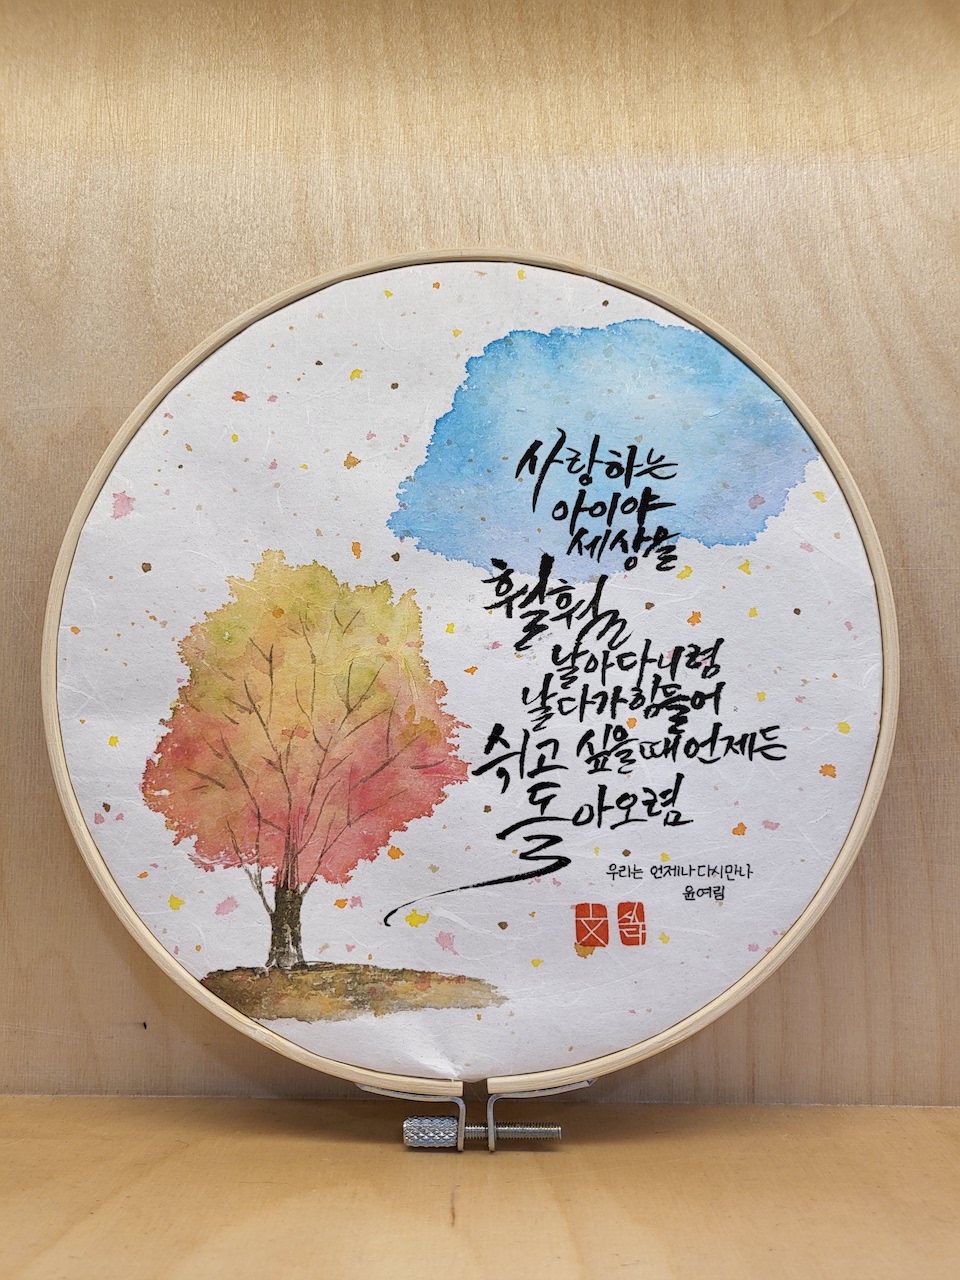 사랑하는
아이야
세상을
훨훨
날아다니렴
날다가 힘들어
쉬고 싶을때 언제든
돌아오렴
우리는 언제나 다시만나
윤여림